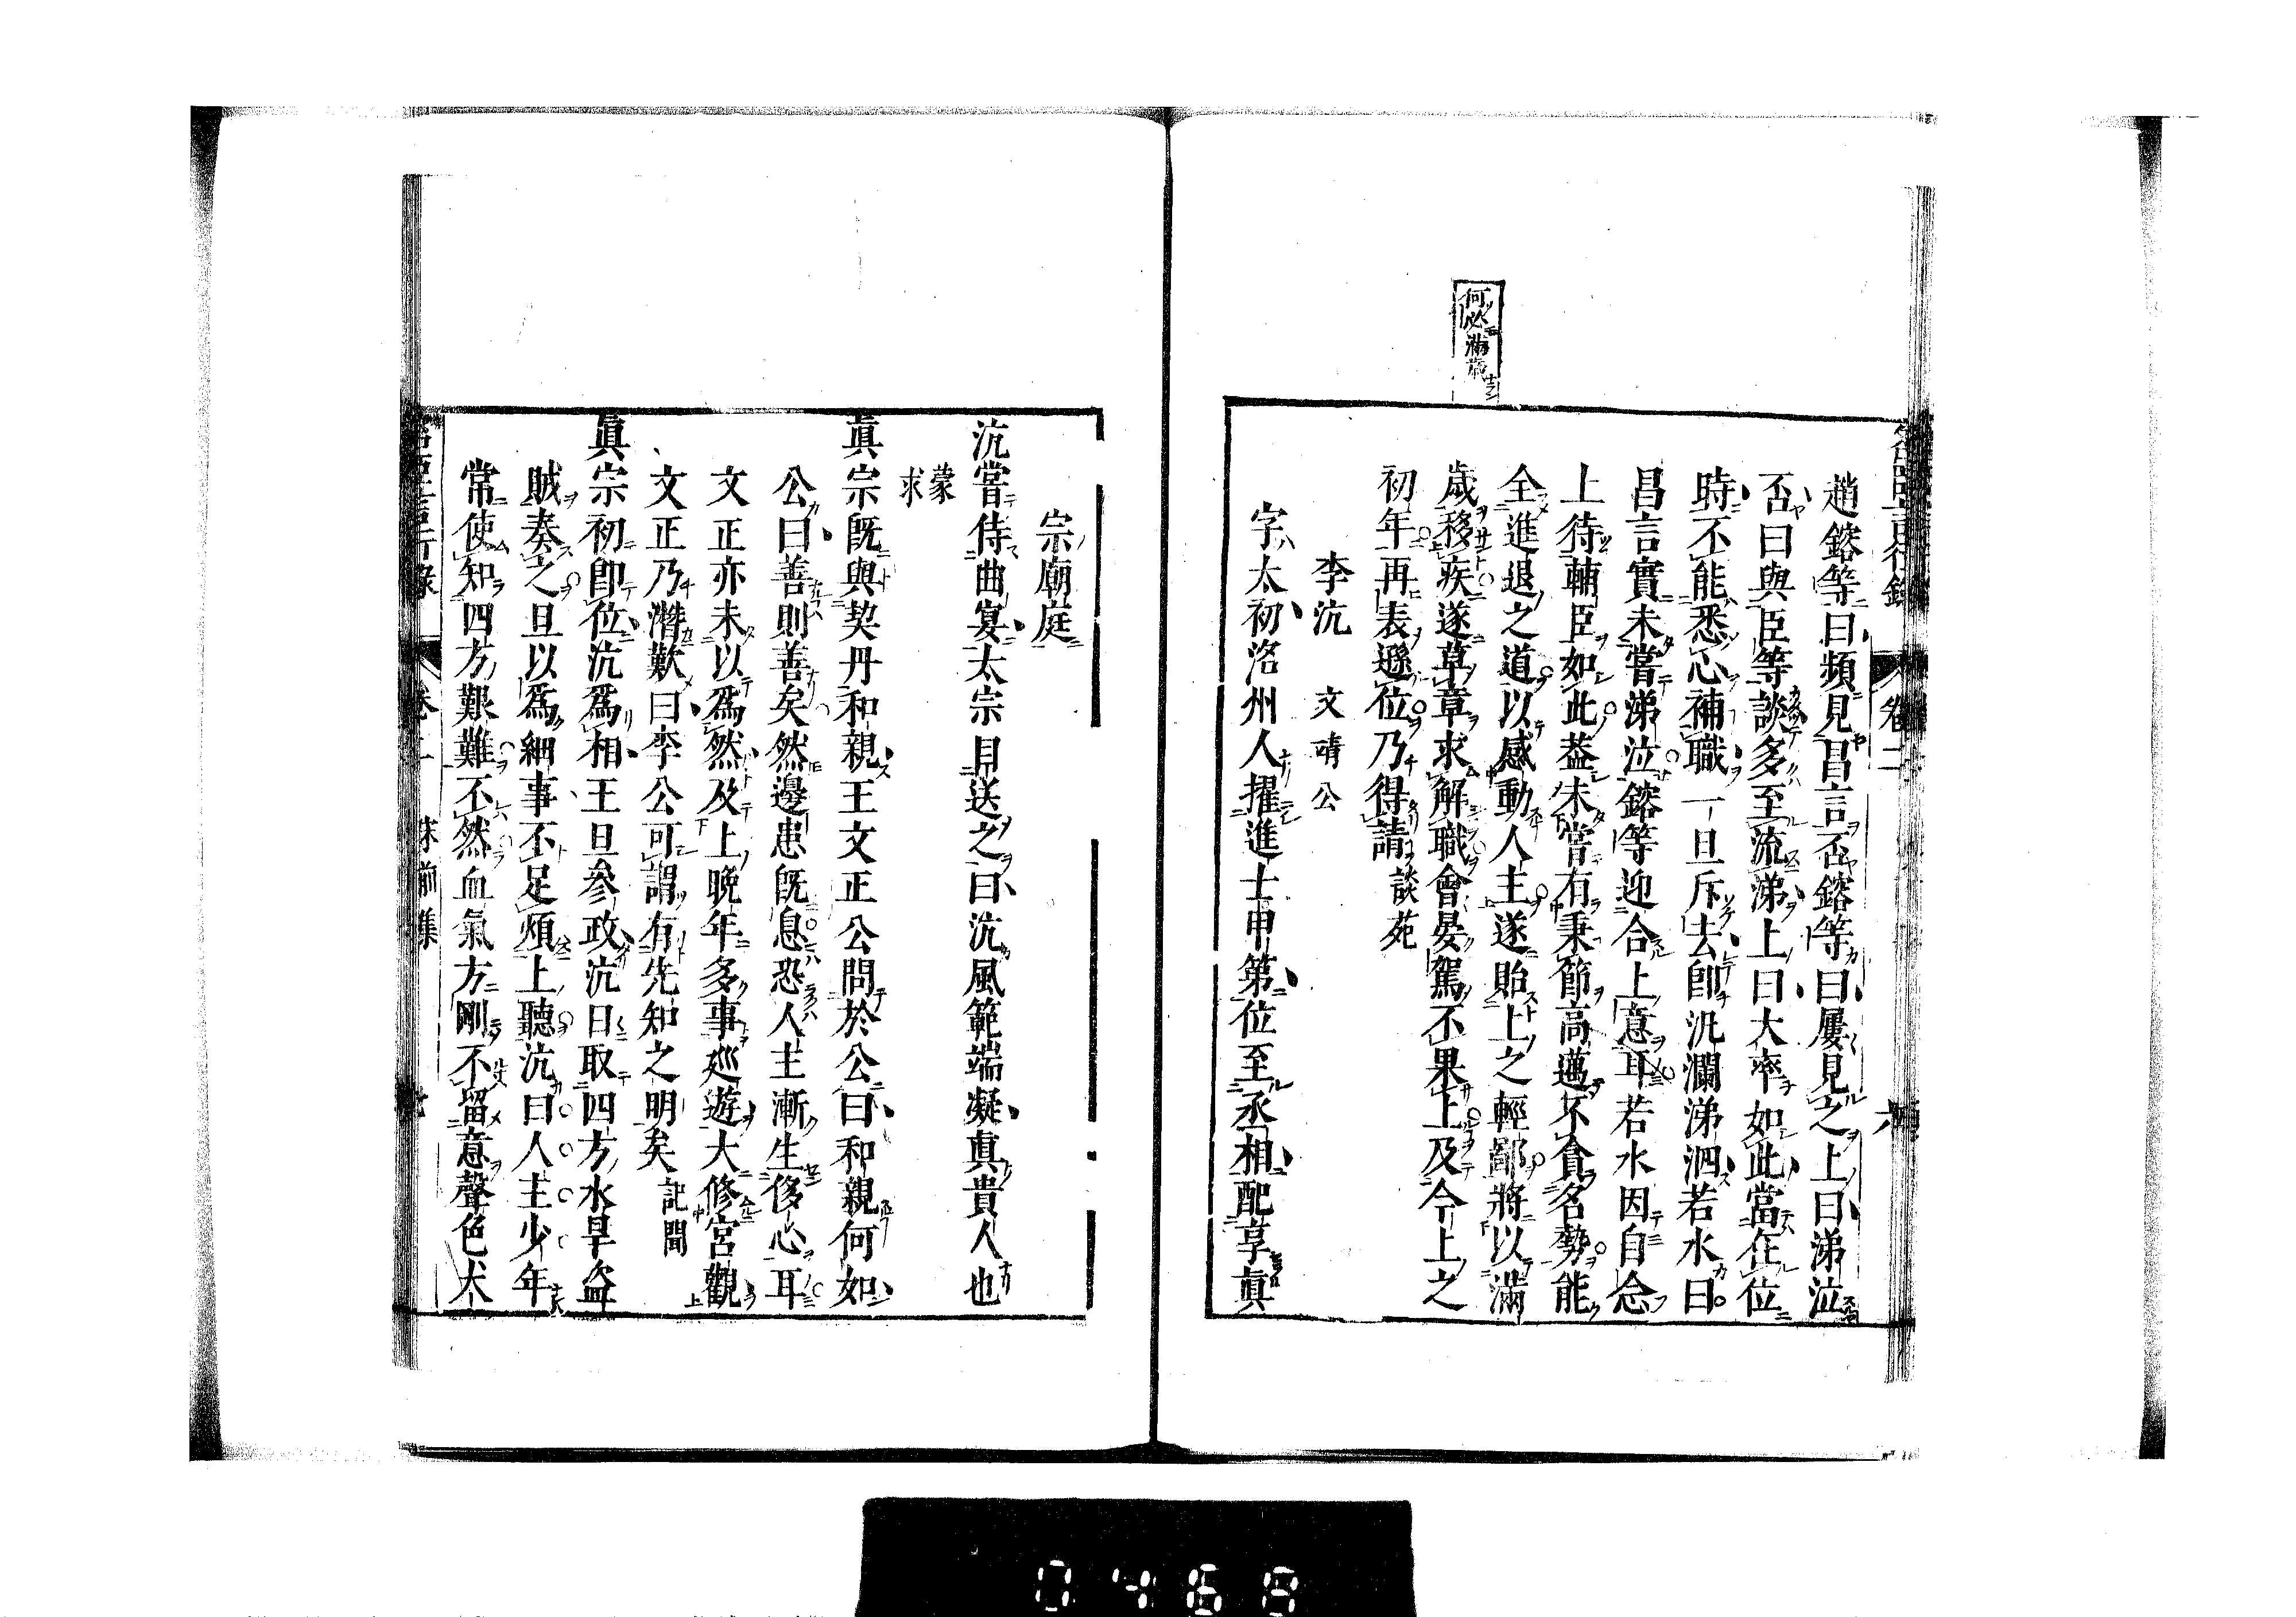 趙鎔等曰頻見昌言否鎔等曰屢見之上曰涕泣
否曰與臣等談多至流涕上曰大率如此當在位
時不能悉心補職一旦斥去卽汍瀾涕泗若水曰
昌言實未嘗涕泣鎔等迎合上意耳若水因自念
上待輔臣如此葢未嘗有秉節高邁不貪名勢能
全進退之道以感動人主遂貽上之輕鄙將以滿
歲移疾遂草章求解職會晏駕不果上及今上之
初年再表遜位乃得請談苑
李沆 文靖公
字太初洺州人擢進士甲第位至丞相配享真
何必滿歲
卷二
六
宗廟庭
沆嘗侍曲宴太宗目送之曰沆風範端凝真貴人也
蒙
求
眞宗旣與契丹和親王文正公問於公曰和親何如
公曰善則善矣然邊患旣息恐人主漸生侈心耳
文正亦未以爲然及上晚年多事巡遊大修宮觀
文正乃潛歎曰李公可謂有先知之明矣記聞
眞宗初卽位沆爲相王旦參政沆日取四方水旱盜
賊奏之旦以爲細事不足煩上聽沆曰人主少年
常使知四方艱難不然血氣方剛不留意聲色犬
0468